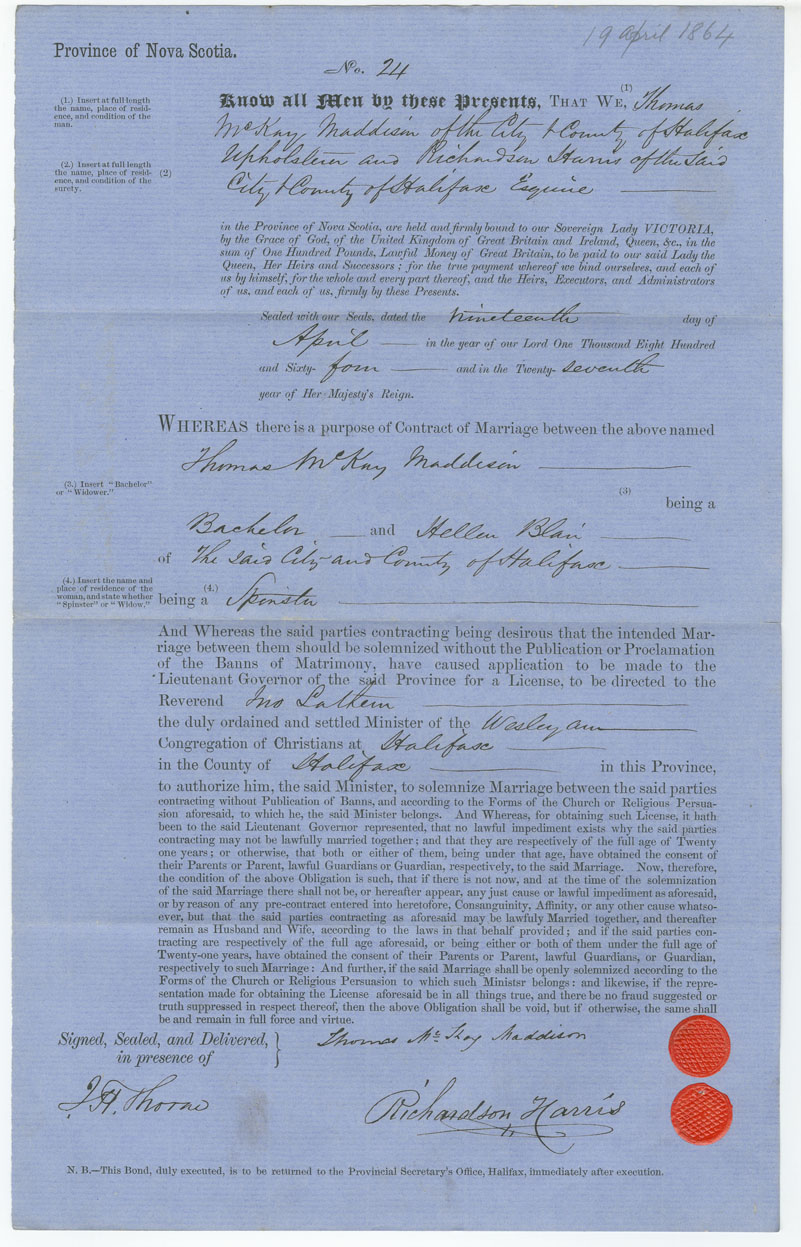 19 April 1864
Province of Nova Scotia.
No. 24
(1.) Insert at full length
the name, place of resid-
ence, and condition of the
man.
(2.) Insert at full length
the name, place of resid-
ence, and condition of the
surety.
(1)
Know all Men by these Presents, THAT WE, Thomas
McKay Maddison of the City & County of Halifax
(2)
Upholsterer and Richardson Harris of the Said
City & County of Halifax Esquire
in the Province of Nova Scotia, are held and firmly bound to our Sovereign Lady VICTORIA,
by the Grace of God, of the United Kingdom of Great Britain and Ireland, Queen, &c., in the
sum of One Hundred Pounds, Lawful Money of Great Britain, to be paid to our said Lady the
Queen, Her Heirs and Successors; for the true payment whereof we bind ourselves, and each of
us by himself, for the whole and every part thereof, and the Heirs, Executors, and Administrators
of us, and each of us, firmly by these Presents.
Sealed with our Seals, dated the nineteenth day of
April in the year of our Lord One Thousand Eight Hundred
and Sixty- four and in the Twenty- seventh
year of Her Majesty's Reign.
WHEREAS there is a purpose of Contract of Marriage between the above named
Thomas McKay Maddison
(3.) Insert "Bachelor"
or "Widower."
(3)
being a
Bachelor and Hellen Blair
of The Said City and County of Halifax
(4.) Insert the name and
place of residence of the
woman, and state whether
"Spinster" or "Widow."
(4.)
being a Spinster
And Whereas the said parties contracting being desirous that the intended Mar-
riage between them should be solemnized without the Publication or Proclamation
of the Banns of Matrimony, have caused application to be made to the
Lieutenant Governor of the said Province for a License, to be directed to the
Reverend Jno Lathern
the duly ordained and settled Minister of the Wesleyan
Congregation of Christians at Halifax
in the County of Halifax in this Province,
to authorize him, the said Minister, to solemnize Marriage between the said parties
contracting without Publication of Banns, and according to the Forms of the Church or Religious Persua-
sion aforesaid, to which he, the said Minister belongs. And Whereas, for obtaining such License, it hath
been to the said Lieutenant Governor represented, that no lawful impediment exists why the said parties
contracting may not be lawfully married together; and that they are respectively of the full age of Twenty
one years; or otherwise, that both or either of them, being under that age, have obtained the consent of
their Parents or Parent, lawful Guardians or Guardian, respectively, to the said Marriage. Now, therefore,
the condition of the above Obligation is such, that if there is not now, and at the time of the solemnization
of the said Marriage there shall not be, or hereafter appear, any just cause or lawful impediment as aforesaid,
or by reason of any pre-contract entered into heretofore, Consanguinity, Affinity, or any other cause whatso-
ever, but that the said parties contracting as aforesaid may be lawfuly Married together, and thereafter
remain as Husband and Wife, according to the laws in that behalf provided; and if the said parties con-
tracting are respectively of the full age aforesaid, or being either or both of them under the full age of
Twenty-one years, have obtained the consent of their Parents or Parent, lawful Guardians, or Guardian,
respectively to such Marriage: And further, if the said Marriage shall be openly solemnized according to the
Forms of the Church or Religious Persuasion to which such Ministsr belongs: and likewise, if the repre-
sentation made for obtaining the License aforesaid be in all things true, and there be no fraud suggested or
truth suppressed in respect thereof, then the above Obligation shall be void, but if otherwise, the same shall
be and remain in full force and virtue.
Signed, Sealed, and Delivered,
in presence of
Thomas Mc Kay Maddison
J. H. Thorne
Richardson Harris
N. B.—This Bond, duly executed, is to be returned to the Provincial Secretary's Office, Halifax, immediately after execution.